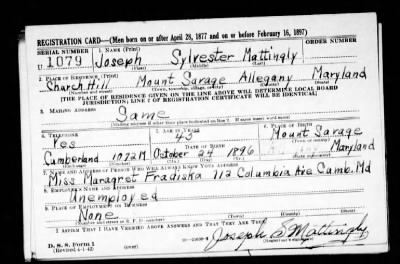 REGISTRATION CARD—(Men born on or after April 28, 1877 and on or before February 16, 1897)
SERIAL NUMBER 1. NAME (Print) ORDER NUMBER
U 1079 Joseph Sylvester Mattingly
(First) (Middle) (Last)
2. PLACE OF RESIDENCE (Print)
Church Hill Mount Savage Allegany Maryland
(Number and street) (Town, township, village, or city) (County) (State)
[THE PLACE OF RESIDENCE GIVEN ON THE LINE ABOVE WILL DETERMINE LOCAL BOARD
JURISDICTION; LINE 2 OF REGISTRATION CERTIFICATE WILL BE IDENTICAL]
3. MAILING ADDRESS
Same
[Mailing address if other than place indicated on line 2. If same insert word same]
4. TELEPHONE 5. AGE IN YEARS 6. PLACE OF BIRTH
Yes 45 Mount Savage
DATE OF BIRTH
Cumberland 1072M October 24 1896 Maryland
7. NAME AND ADDRESS OF PERSON WHO WILL ALWAYS KNOW YOUR ADDRESS
Miss Maragret Fradiska 112 Columbia Ave Cumb. Md
8. EMPLOYER'S NAME AND ADDRESS
Unemployed
9. PLACE OF EMPLOYMENT OR BUSINESS
None
(Number and street or R. F. D. number) (Town) (County) (State)
I AFFIRM THAT I HAVE VERIFIED ABOVE ANSWERS AND THAT THEY ARE TRUE.
D. S. S. Form 1
(Revised 4-1-42) Joseph S Mattingly